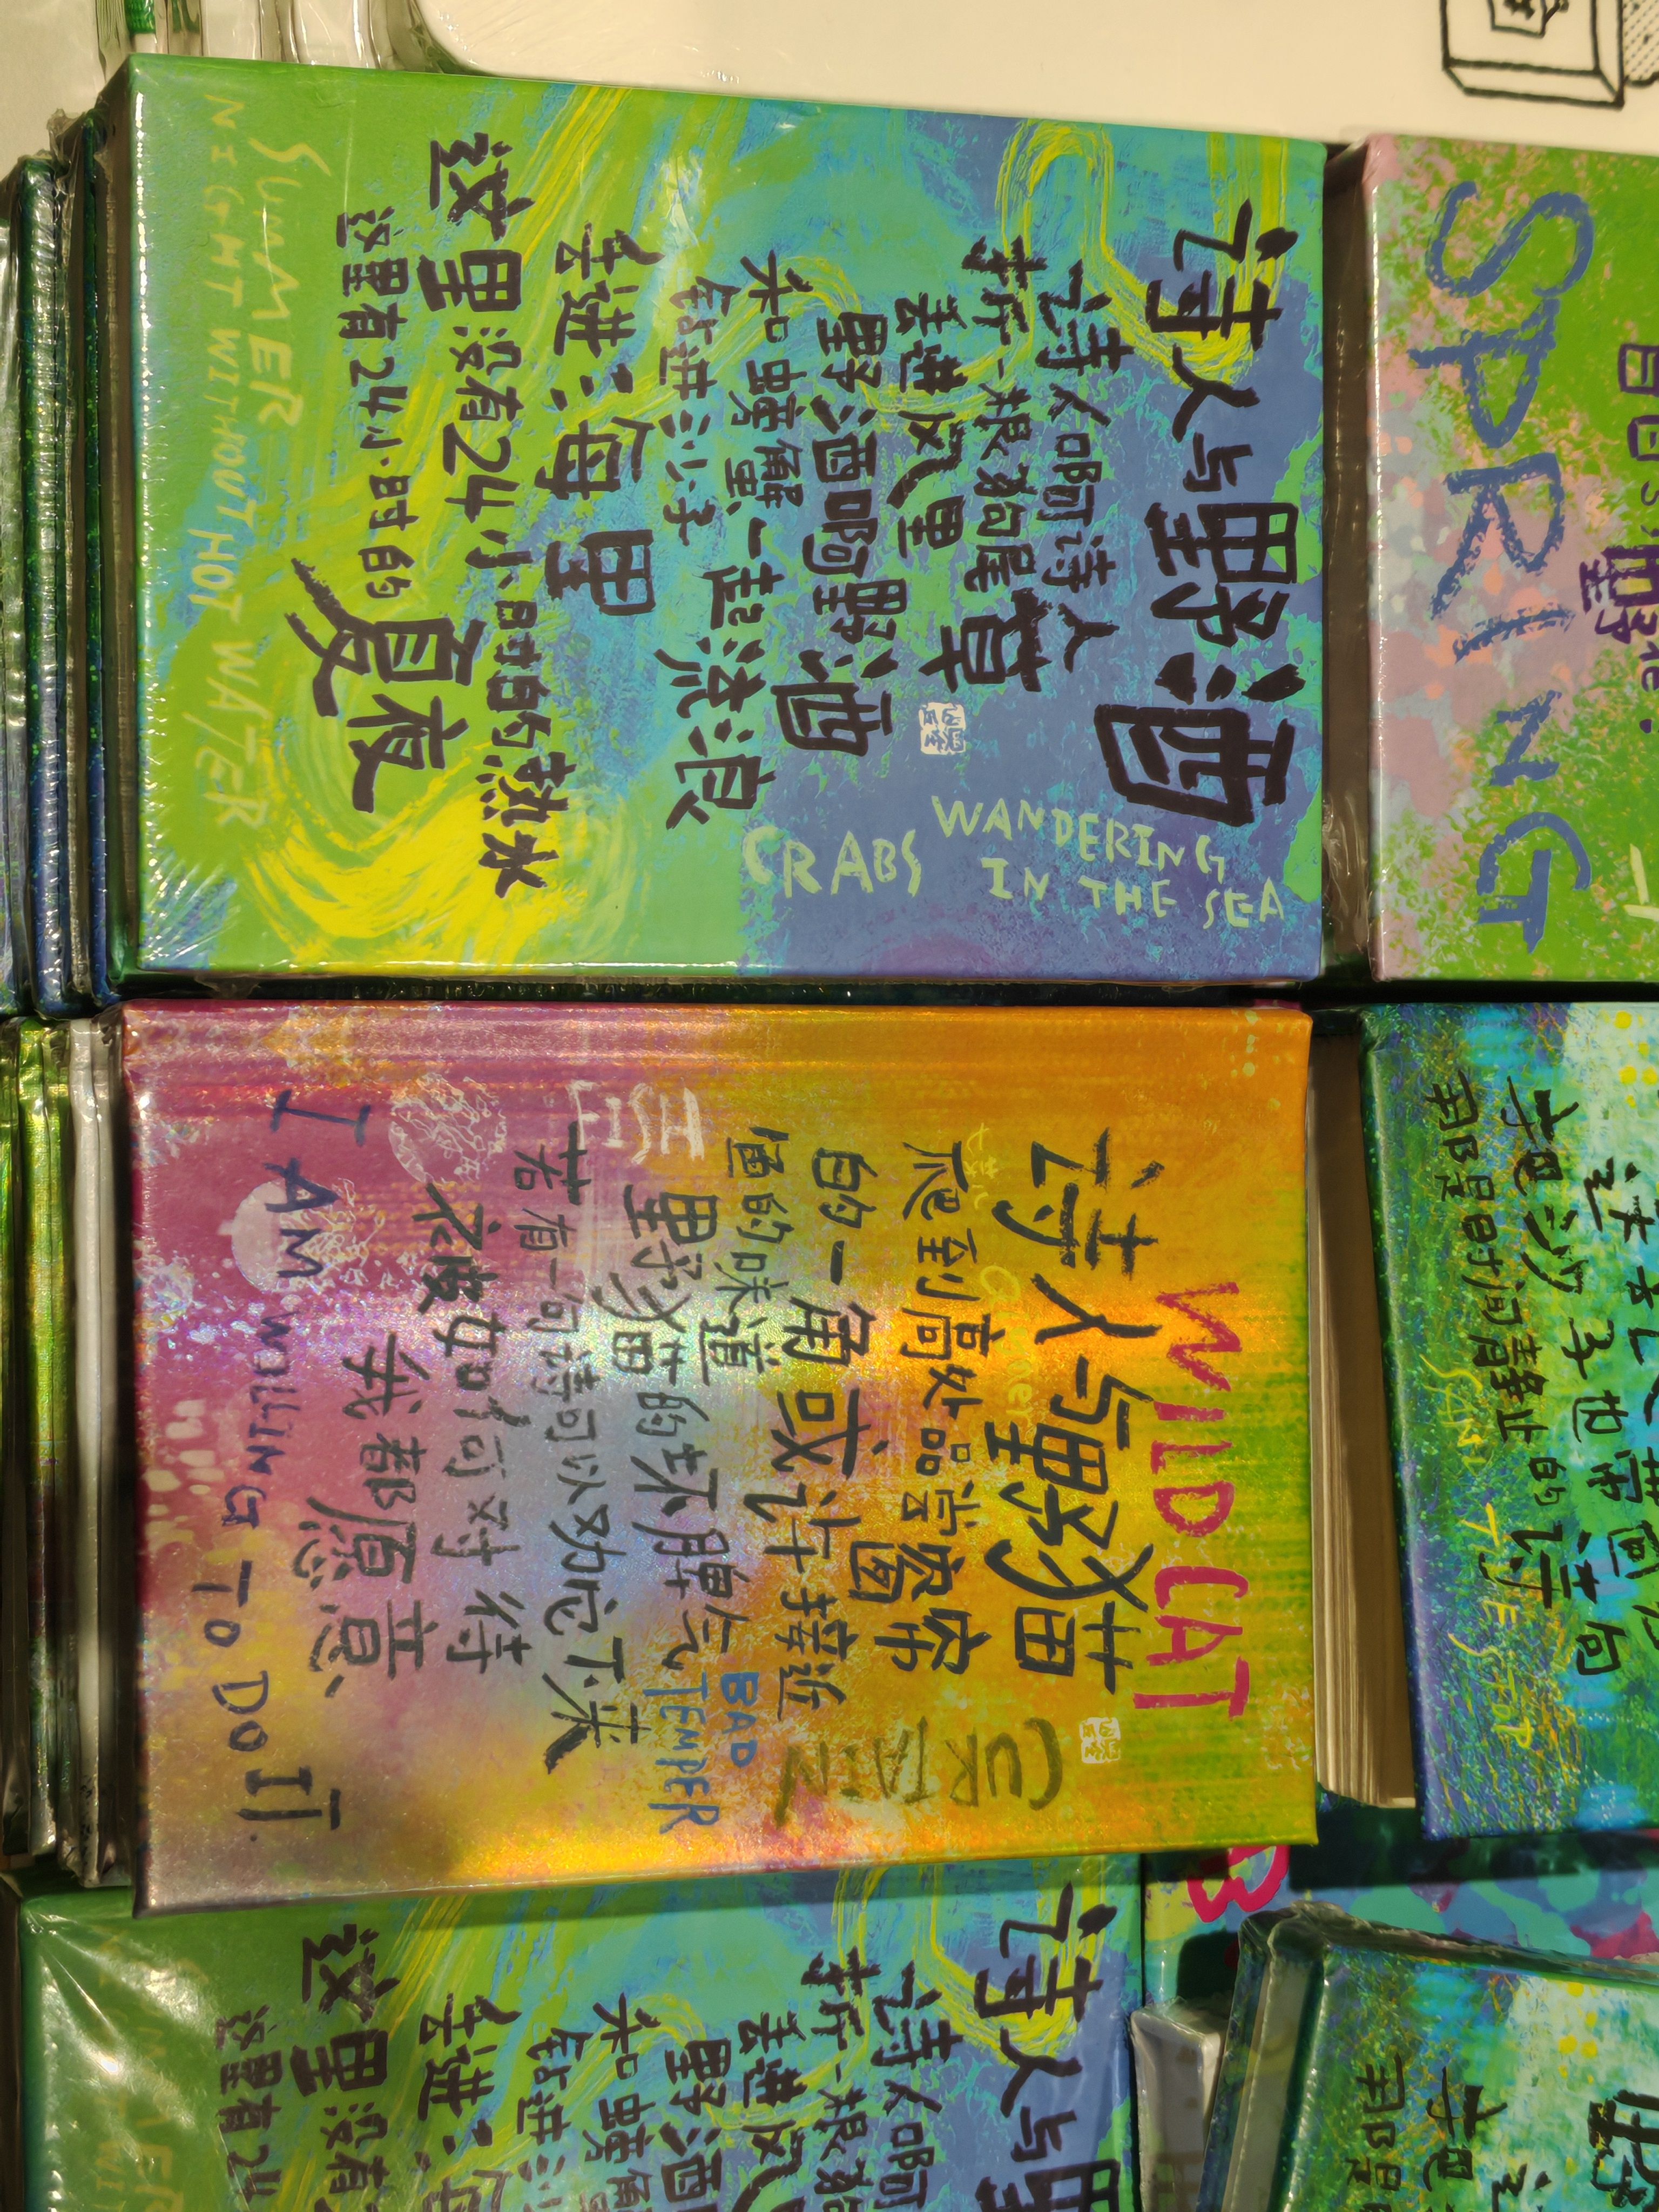 诗人与野酒
诗人啊诗人
折一根狗尾草
丢进风里
野酒啊野酒
和螃蟹一起流浪
钻进沙子
丢进海里
这里没有24小时的热水
这里有24小时的夏夜
CRABS WANDERING
IN THE SEA
SUMMER
NIGHT WITHOUT HOT WATER
WILD CAT
诗人与野猫
爬到高处品尝窗帘
的一角或计接近
鱼的味道
野猫的坏脾气
若有一句诗可以劝它下来
永度如何对待
我都愿意
CURTAIN
BAD
TEMPER
I AM WILLING TO DO IT.
SPRING
那是时间静止的诗
SAND
TIME STOP
诗人与野
诗人啊诗
折一根狗
丢进风
野酒
和螃蟹
钻进沙
丢进
这里没有
这里有24